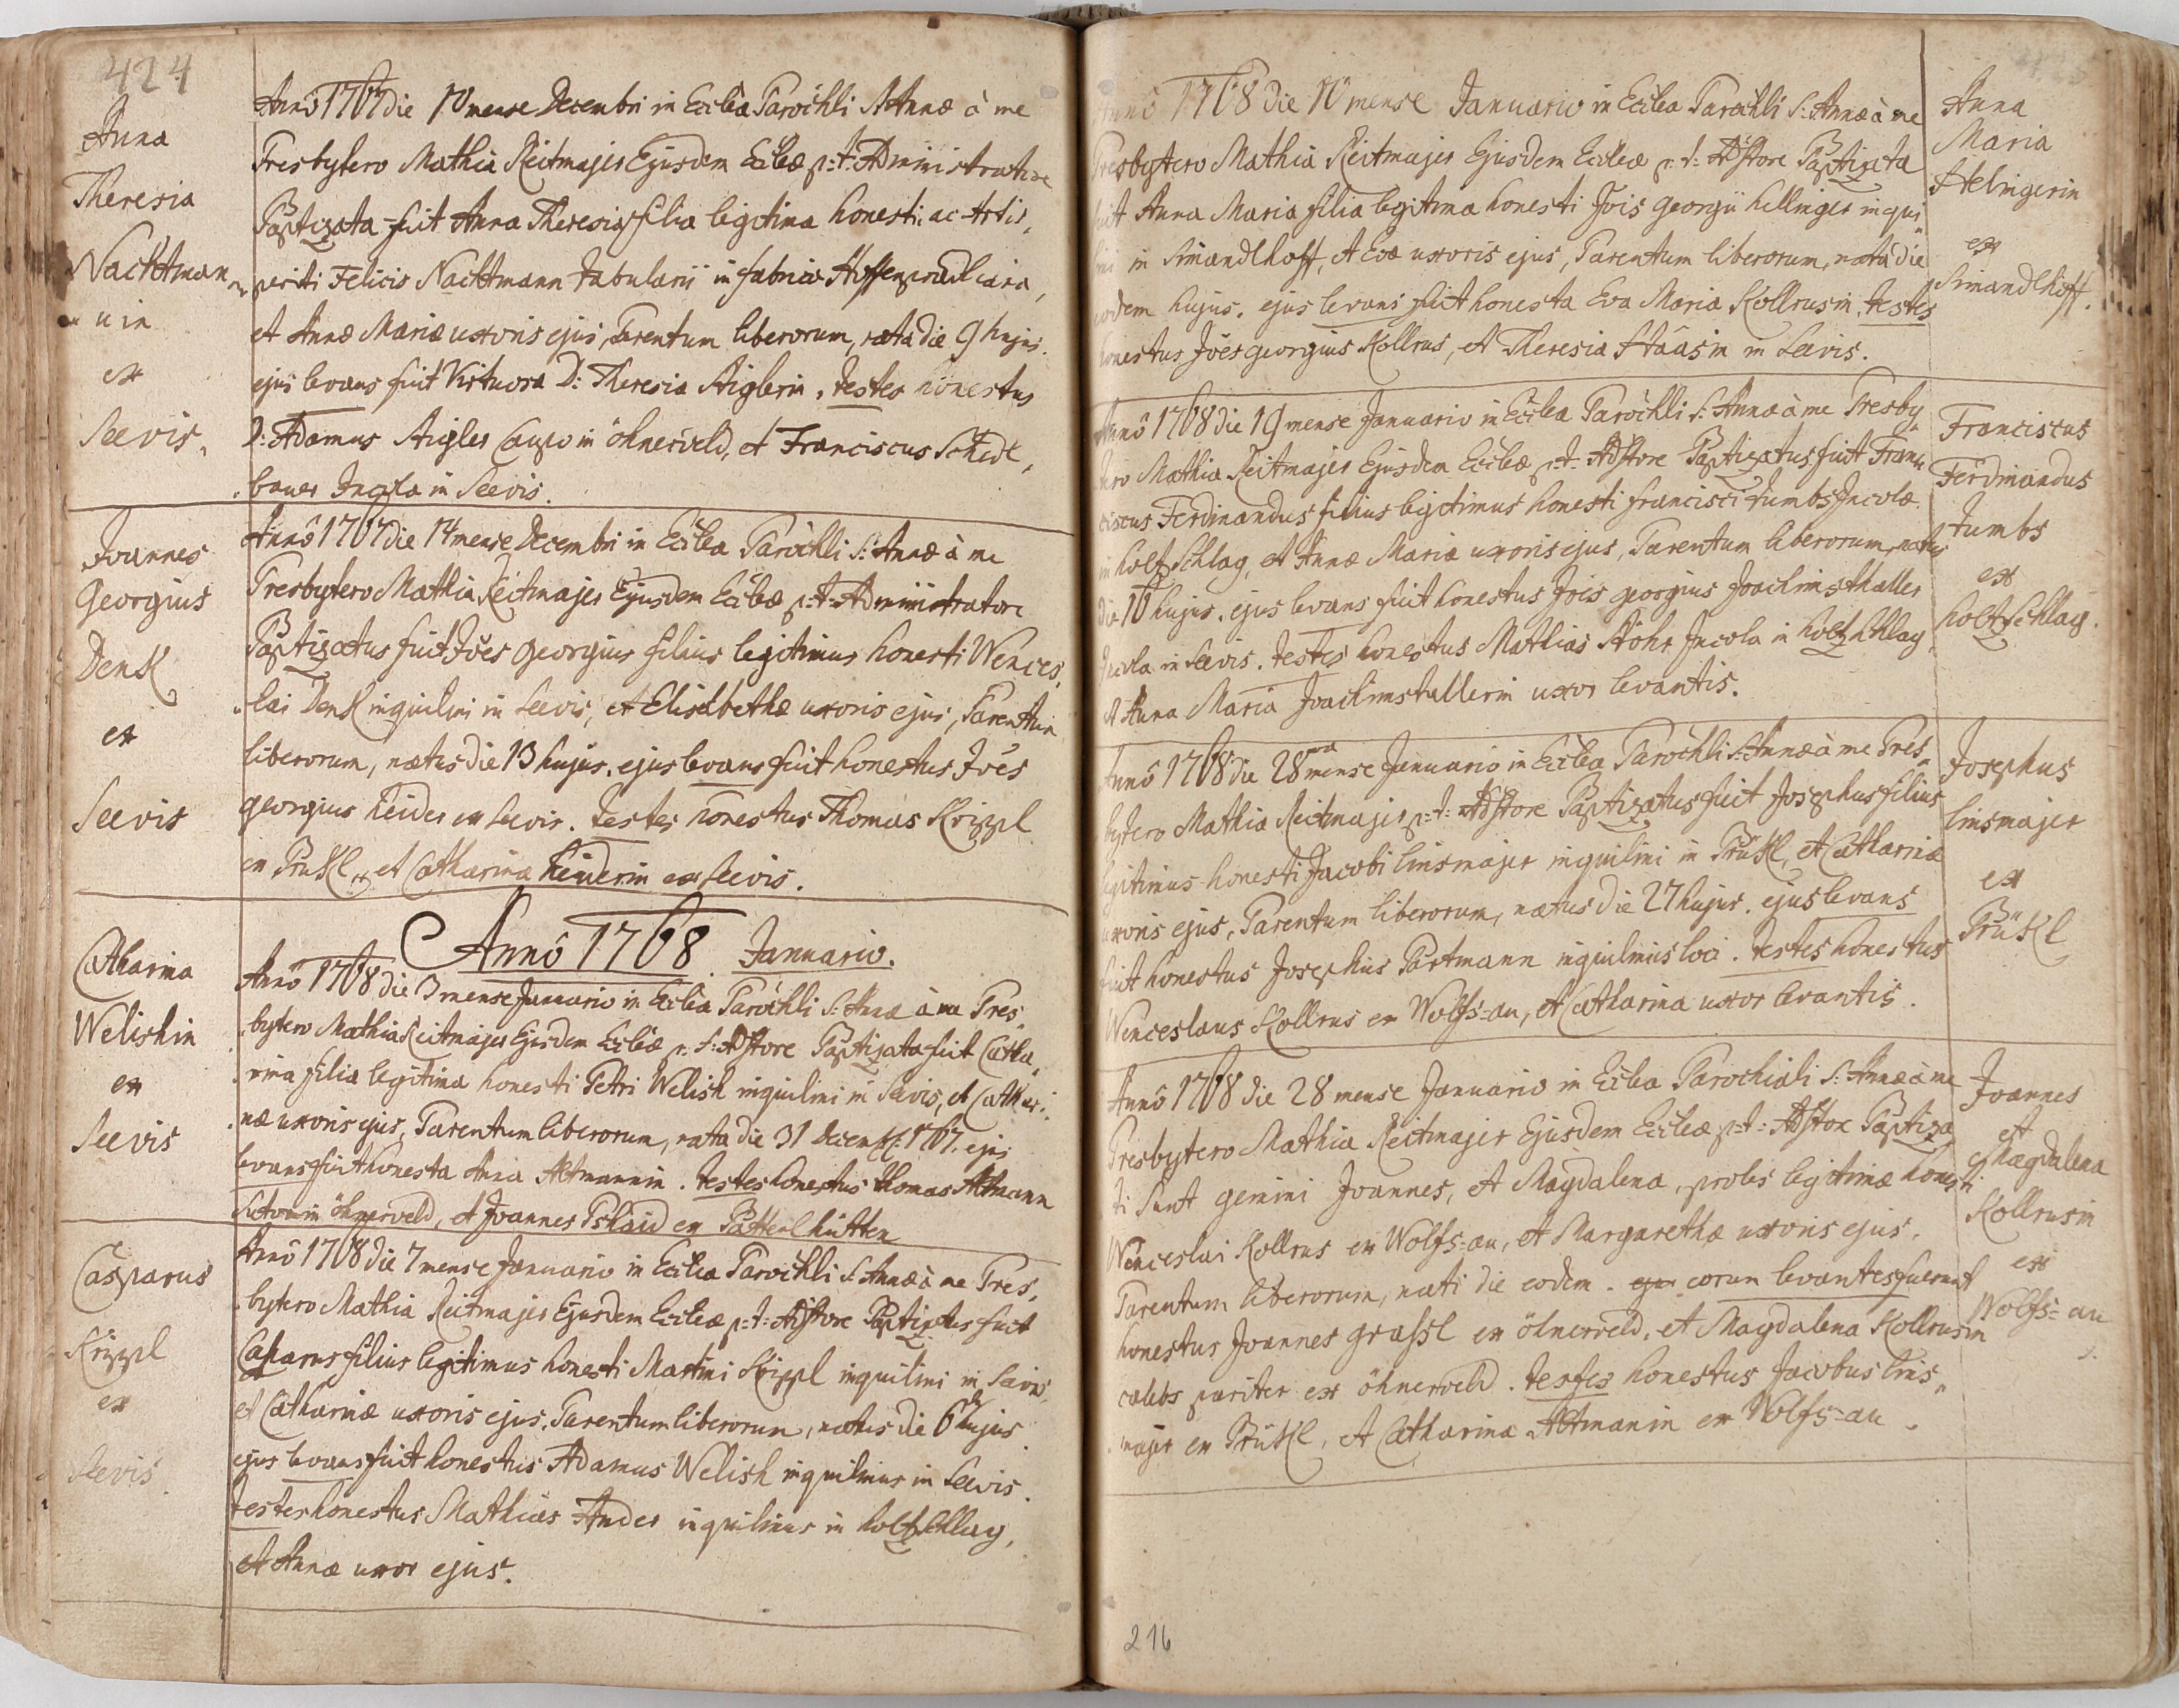 424
Anna
Theresia
Nachtman„
„nin
ex
Seevis.
Annô 1767 die 10 mense Decembri in Ecclêa Parôchli S. Annæ à me
Presbytero Mathia Reitmajer Ejusdem Eccleæ p:t: Administratore
Baptizata fuit Anna Theresia filia legitima honesti ac Artis„
periti Felicis Nachtmann tabularii in fabrica
et Annæ Mariæ uxoris ejus, Parentum liberorum, nata die 9 hujus.
ejus levans fuit Virtuosa D: Theresia Aiglerin. testes honestus
D: Adamus Aigler Caupo in öhnerveld, et Franciscus Schedl„
„bauer Incola in Seevis.
Joannes
Georgius
Denk
ex
Seevis
Annô 1767 die 14 mense Decembri in Ecclea Parôchli S: Annæ à me
Presbytero Mathia Reitmajer Ejusdem Eccleæ p:t: Administratore
Baptizatus fuit Joês Georgius filius legitimus honesti Wences„
„lai Denk inquilini in Seevis, et Elisabethæ uxoris ejus, Parentum
liberorum, natus die 13 hujus. ejus levans fuit honestus Joês
georgius heider ex Seevis. testes honestus Thomas Krippl
ex Prukl, et Catharina heiderin ex Seevis.
Annô 1768 Januario.
Catharina
Welishin
ex
Seevis
Annô 1768 die 3 mense Januario in Ecclea Parôchli S: Annæ à me Pres„
„bytero Mathia Reitmajer Ejusdem Eccleæ p:t: Adstore Baptizata fuit Catha„
„rina filia legitima honesti Petri Welish inquilini in Seevis, et Cathari„
„næ uxoris ejus, Parentum liberorum, nata die 31 Decemb: 1767. ejus
levans fuit honesta Anna Altmannin. testes honestus thomas Altmann
Sutor in öhnerveld, et Joannes Pskaid ex Patterlhütten
Casparus
Krippl
ex
Seevis
Annô 1768 die 7 mense Januario in Ecclea Parôchli S: Annæ à me Pres„
„bytero Mathia Reitmajer Ejusdem Eccleæ p:t: Adstore Baptizatus fuit
Casparus filius legitimus honesti Martini Krippl inquilini in Seevis,
et Catharinæ uxoris ejus, Parentum liberorum, natus die 6 hujus
ejus levans fuit honestus Adamus Welish inquilinus in Seevis.
testes honestus Mathias Ander inquilinus in holtzschlag,
et Anna uxor ejus.
Annô 1768 die 10 mense Januario in Ecclea Parôchli S: Annæ à me
Presbytero Mathia Reitmajer Ejusdem Eccleæ p:t: Adstore Baptizata
fuit Anna Maria filia legitima honesti Jois georgii hellinger inqui„
lini in Simandlhoff, et Evæ uxoris ejus, Parentum liberorum, nata die
eodem hujus. ejus levans fuit honesta Eva Maria Kollrusin. testes
honestus Joês georgius Kollrus, et Theresia Haâsin in Seevis.
Anna
Maria
Helingerin
ex
Simandlhoff.
Annô 1768 die 19 mense Januario in Ecclea Parôchli S: Annæ à me Presby„
tero Mathia Reitmajer Ejusdem Eccleæ p:t: Adstore Baptizatus fuit Fran„
ciscus Ferdinandus filius legitimus honesti francisci tumbs Incolæ
in holtzSchlag, et Annæ Mariæ uxoris ejus, Parentum liberorum, natus
die 16 hujus. ejus levans fuit honestus Jois georgius Joachimsthaller
Incola in Seevis. testes honestus Mathias Stöhr Incola in holtzschlag
et Anna Maria Joachimstallerin uxor levantis.
Franciscus
Ferdinandus
tumbs
ex
holtzschlag.
Annô 1768 die 28 mense Januario in Ecclea Parôchli S: Annæ à me Pres„
bytero Mathia Reitmajer p:t: Adstore Baptizatus fuit Josephus filius
legitimus honesti Jacobi linsmajer inquilini in Prükl, et Catharinæ
uxoris ejus, Parentum liberorum, natus die 27 hujus. ejus levans
fuit honestus Josephus Partmann inquilinus loci. testes honestus
Wenceslaus Kollrus ex Wolfs=au, et Catharina uxor levantis.
Josephus
linsmajer
ex
Prükl
Annô 1768 die 28 mense Januario in Ecclea Parochiali S: Annæ à me
Presbytero Mathia Reitmajer Ejusdem Eccleæ p:t: Adstore Baptiza„
ti sunt gemini Joannes, et Magdalena, proles legitimæ honesti
Wenceslai Kollrus ex Wolfs=au, et Margarethæ uxoris ejus,
Parentum liberorum, nati die eodem. ejus eorum levantes fuerunt
honestus Joannes grassl ex öhnerveld, et Magdalena Kollrusin
cælebs pariter ex öhnerveld. testes honestus Jacobus lins„
„majer ex Prükl, et Catharina Altmanin ex Wolfs=au.
Joannes
et
Magdalena
Kollrusin
ex
Wolfs=au
216